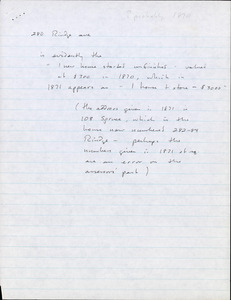 probably 1870
280 Rindge ave
is evidently the
- 1 new house started unfinished - valued
at $700 in 1870, which in
1871 appears as - 1 house & store - $3000
(the address given in 1871 is
108 Spruce, which is the
house now numbered 282-84
Rindge - perhaps the
numbers given in 1871
are an error on the
assessors' part)